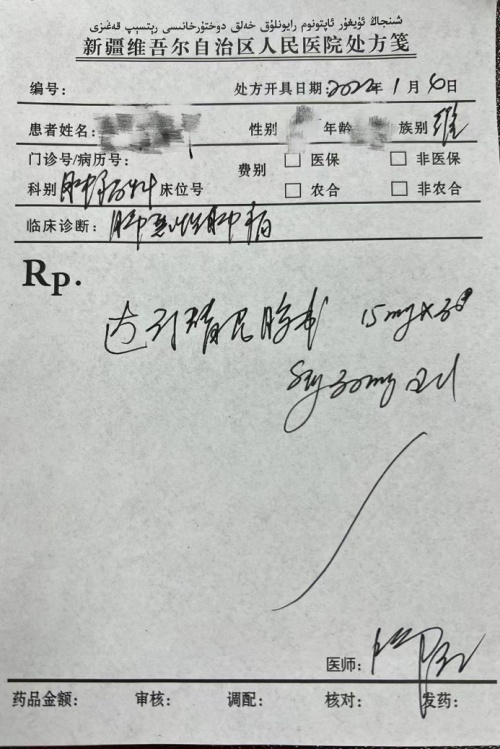 شىنجاڭ ئۇيغۇر ئاپتونوم رايونلۇق خەلق دوختۇرخانىسى رېتسېپ قەغىزى
新疆维吾尔自治区人民医院处方笺
编号： 处方开具日期：2022年1月6日
患者姓名： 性别 年龄 族别 维
门诊号/病历号： 费别 □ 医保 □ 非医保
科别 肿瘤科 床位号 □ 农合 □ 非农合
临床诊断： 肺恶性肿瘤
Rp.
达可替尼胶囊 15mg×30
Sig 30mg qd
医师：
药品金额： 审核： 调配： 核对： 发药：